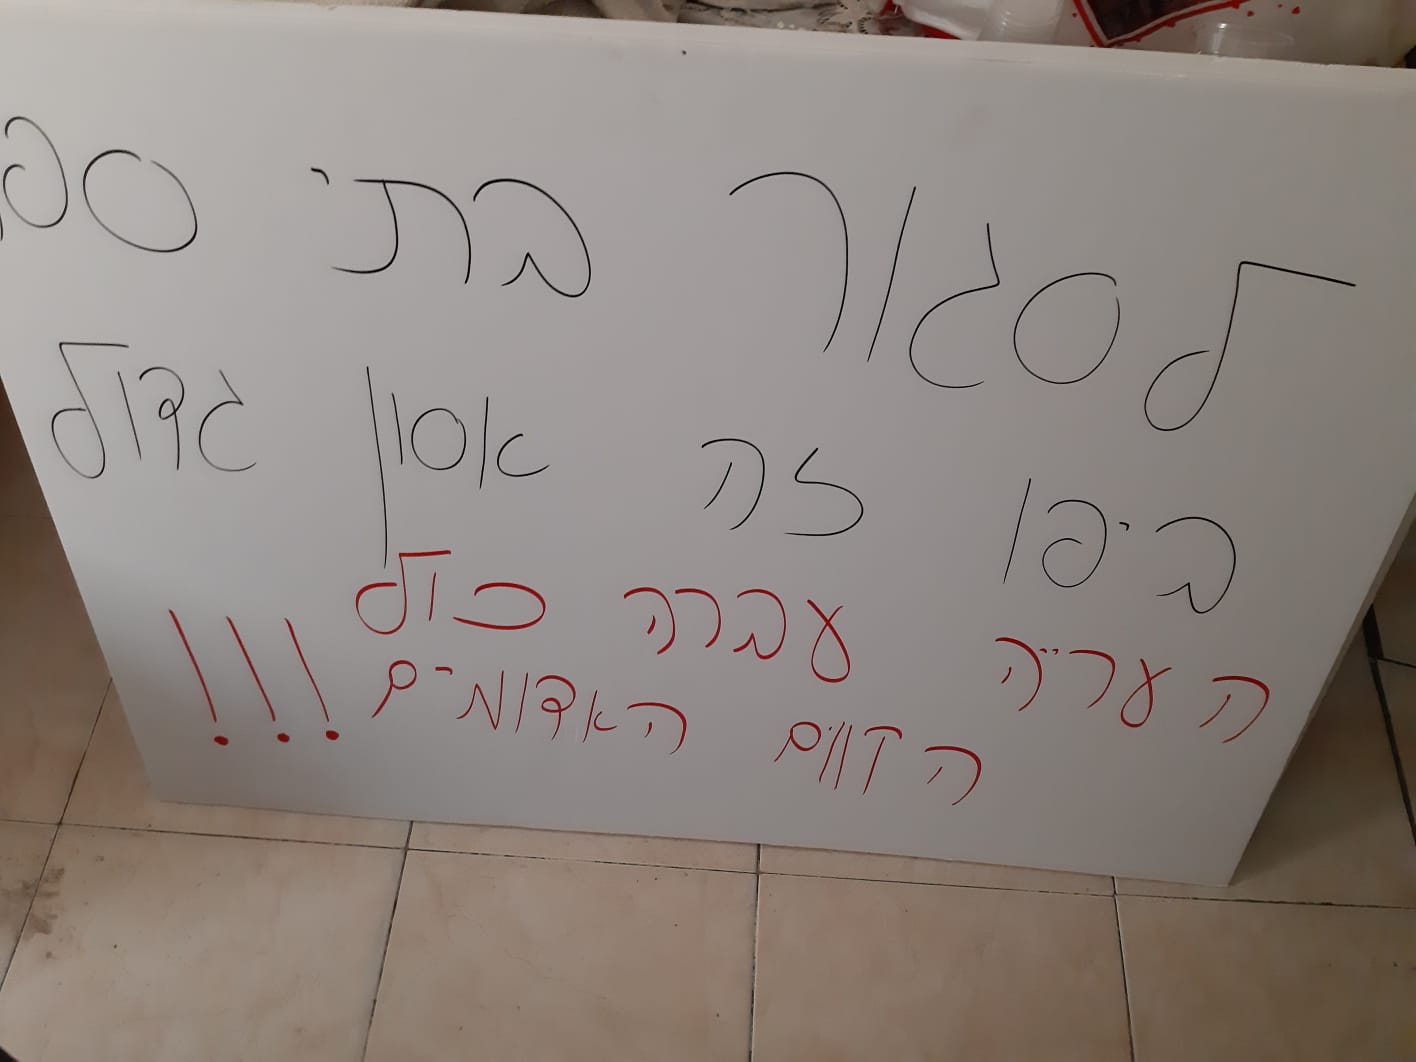 לסגור בתי ספר
ביפו זה אסון גדול
העריה עברה כול
הקווים האדומים !!!